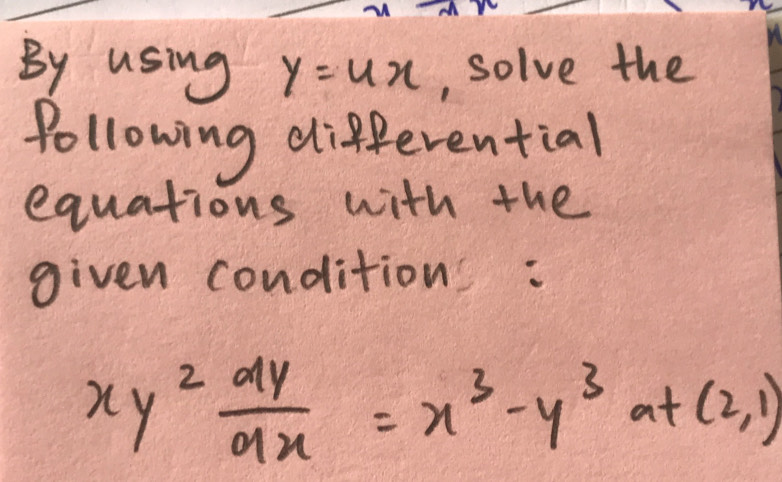 By using y=ux, solve the
following differential
equations with the
given condition :
xy² dy/dx = x³-y³ at (2,1)